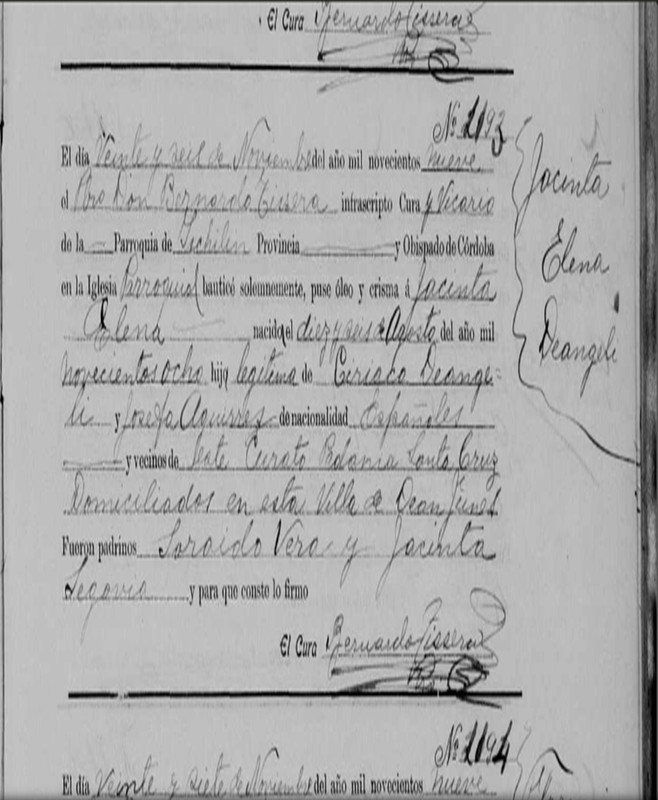 El Cura Bernardo Tissera
Nº 1193
El día Veinte y seis de Noviembre del año mil novecientos nueve
el Pbro Don Bernardo Tissera infrascripto Cura y Vicario
de la Parroquia de Ischilin Provincia y Obispado de Córdoba
en la Iglesia Parroquial bauticé solemnemente, puse óleo y crisma á Jacinta
Elena nacida el diez y seis de Agosto del año mil
novecientos ocho hija legitima de Ciriaco Deange-
li y Josefa Aguirrez de nacionalidad Españoles
y vecinos de este Curato Santa Cruz
Domiciliados en esta Villa de Dean Funes
Fueron padrinos Vera y Jacinta
Segovia y para que conste lo firmo
El Cura Bernardo Tissera
Jacinta
Elena
Deangeli
Nº 1194
El día Veinte y siete de Noviembre del año mil novecientos nueve